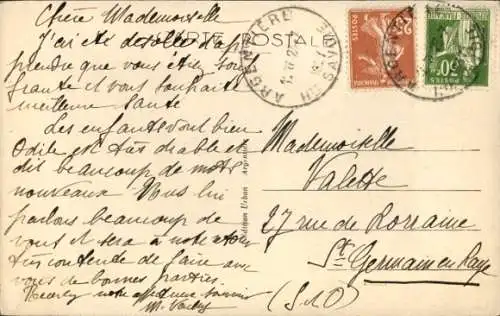 Chère Mademoiselle
J'ai été désolée d'ap-
CARTE POSTALE
prendre que vous étiez souf-
frante et vous souhaite
meilleure santé
Les enfants vont bien
Odile est très
dit beaucoup de mots
nouveaux Nous lui
parlons beaucoup de
vous et sera à notre
très contente de faire avec
vous de bonnes parties.
notre affectueux souvenir
M.
Edition Urban
ARGENTIÈRE
HTE SAVOIE
POSTES
50c
Mademoiselle
Valette
27 rue de Lorraine
St Germain en Laye
(S&O)